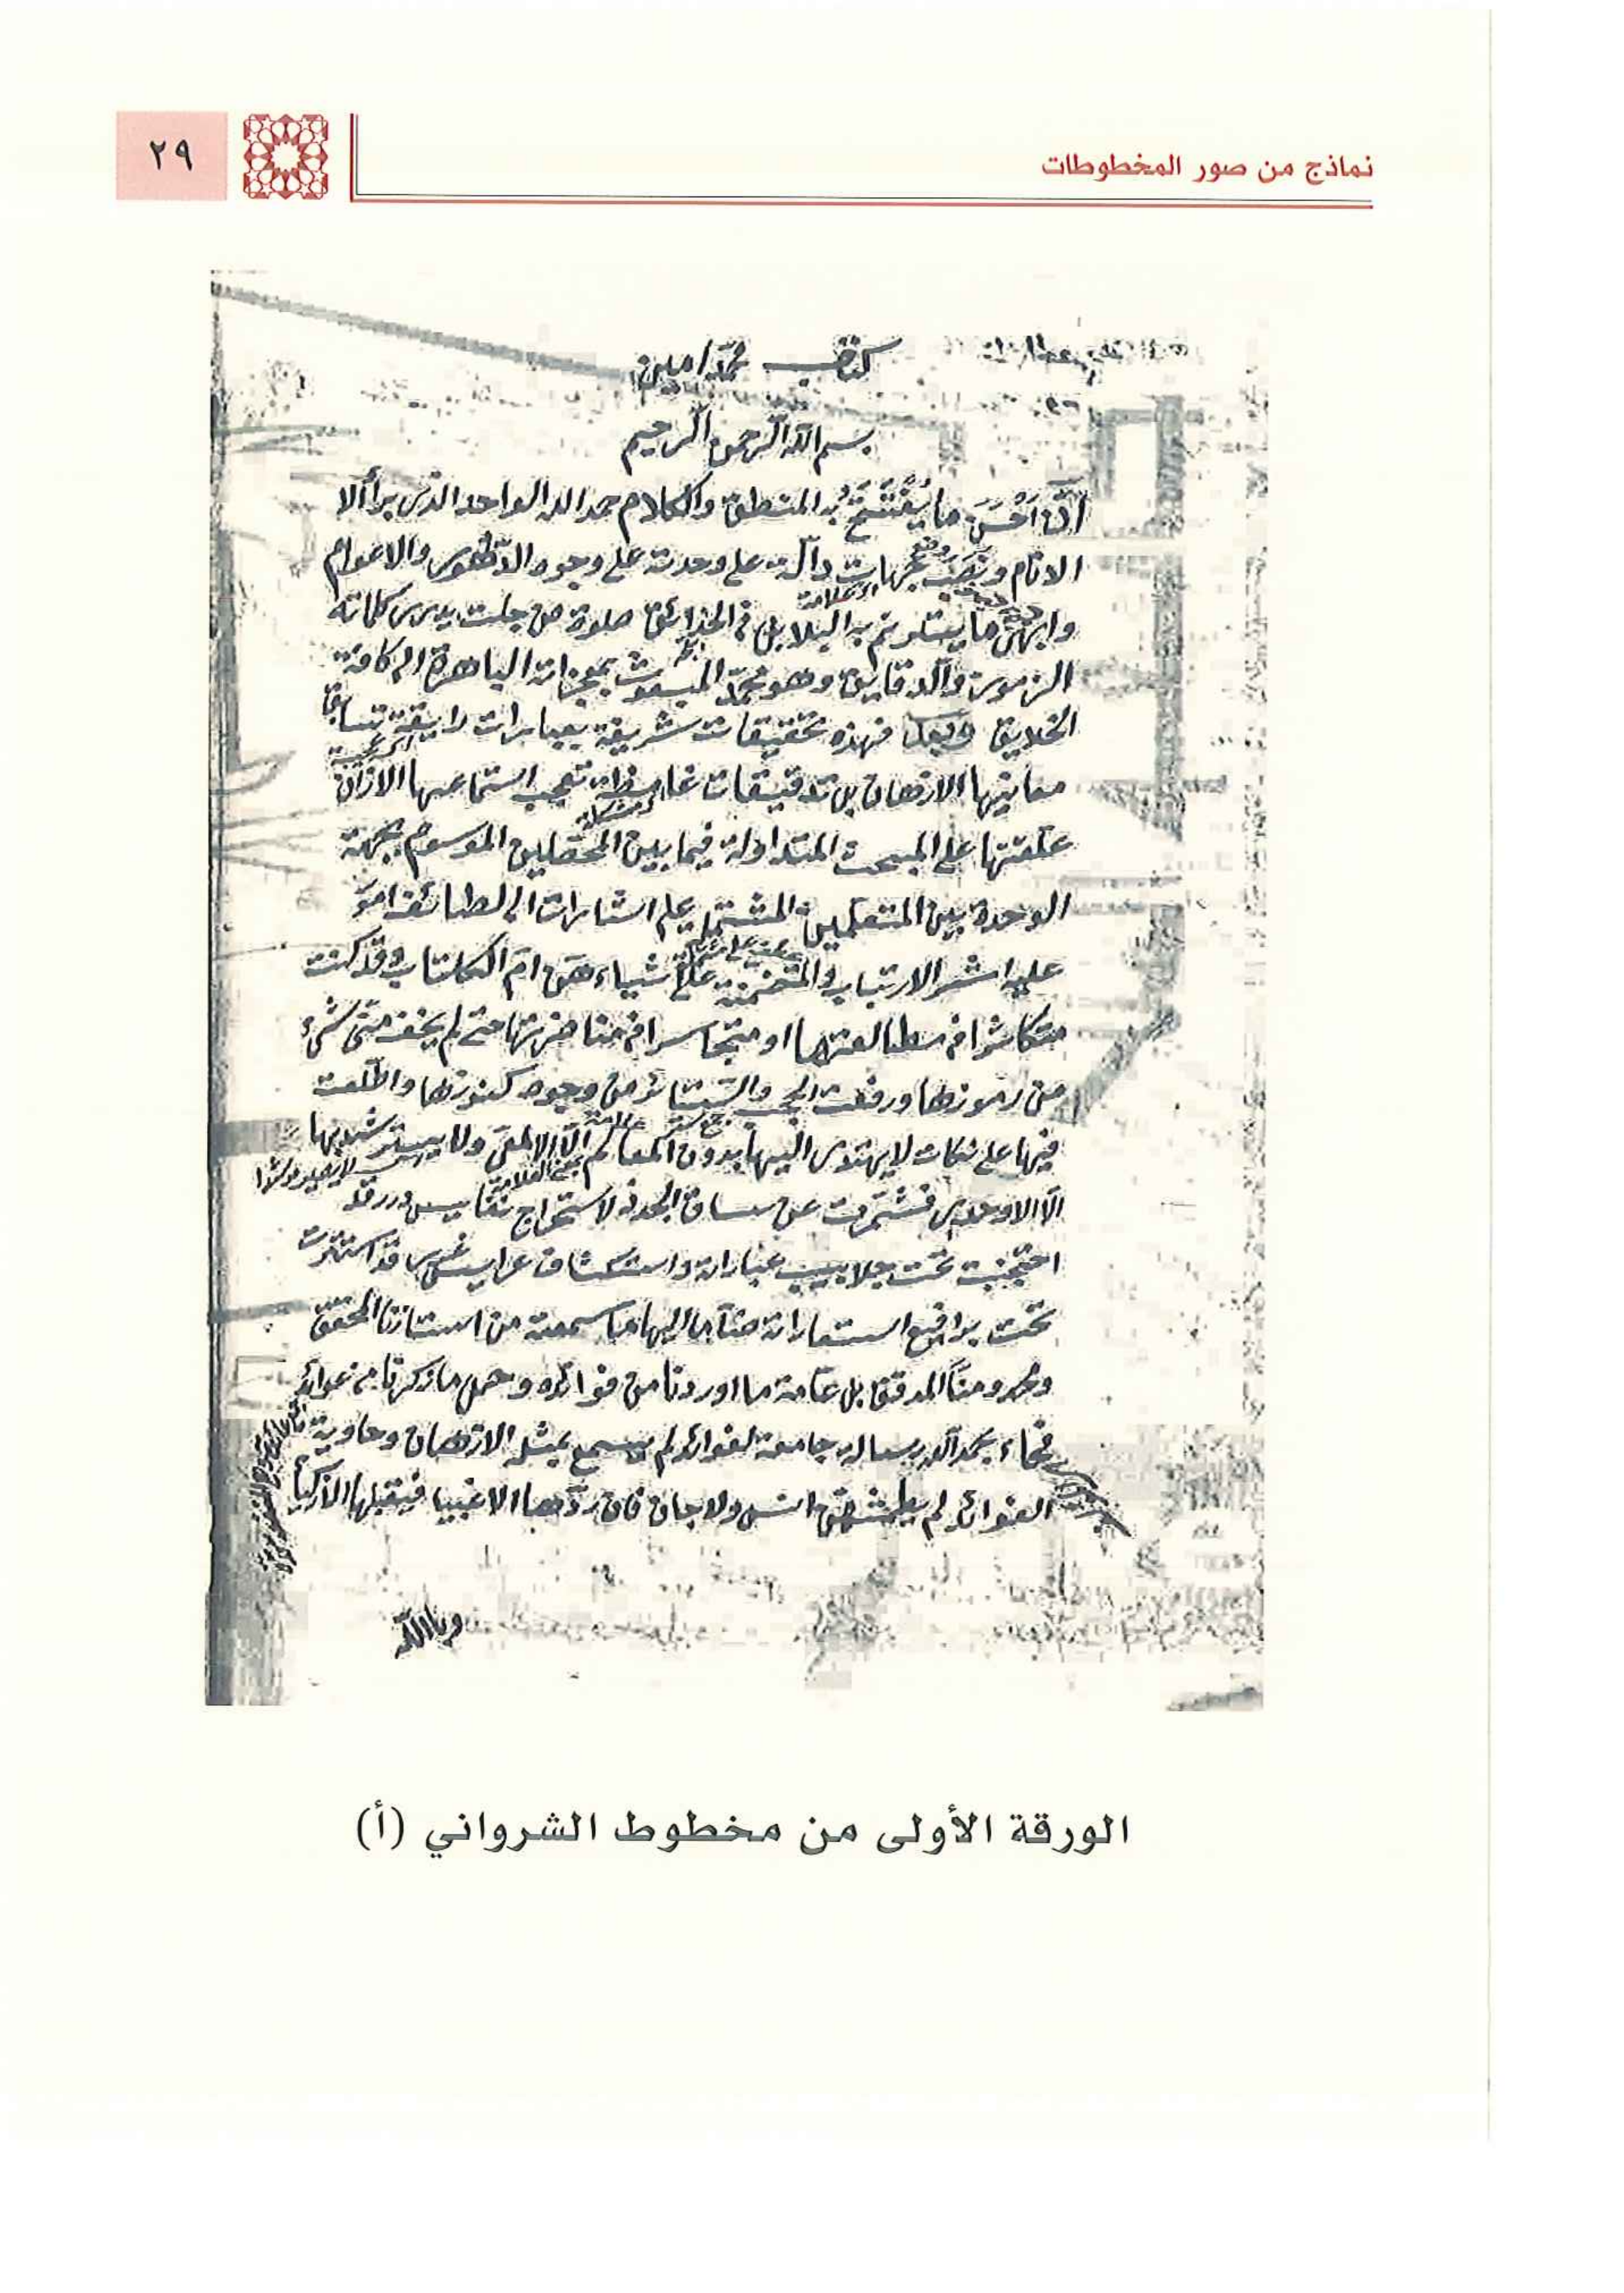 نماذج من صور المخطوطات
٢٩
كتاب محمد امين
بسم الله الرحمن الرحيم
ان احسن ما يُفْتَتَحُ به المنطق والكلام حمد الله الواحد الذى برأ الا
الانام ونصب دآلة على وحدته على وجوه والاعوام
وابهى ما يترنم به البلابل فى الحدائق صلوة من جلت كلماته
الرموز والدقايق وهو محمد المبعوث بمعجزاته الباهرة الى كافة
الخلايق وبعد فهذه تحقيقات شريفة بعبارات رايقة
معاينها الاذهان بل تدقيقات غامضة تعجب استماعها الاذان
علقتها على المبحث المتداولة فيما بين المحصلين الموسوم بجهة
الوحدة بين المتعلمين المشتمل على اشارات الى لطائف
عليه والمتضمنة على اشياء هن ام الكتاب وقد كنت
فى مطالعتها او متجاسرا فى مناظرتها حتى لم يخف منى شئ
من رموزها ورفعت الحجب والستائر من وجوه كنوزها واطلعت
فيها على نكات لا يهتدى اليها بدون المعالم الا الالمعى ولا يسترشد بها
الا الاوحدى فشمرت عن ساق الجد لاستخراج نفايس درر قد
احتجبت تحت جلابيب عباراته واستكشاف عرايس قد استترت
تحت براقع استعاراته ضآما اليها ما سمعته من استاذنا المحقق
ومخدومنا المدقق بل عامة ما اوردنا من فوائده وجمل ما ذكرنا من عوائد
فجاء بحمد الله رسالة جامعة لفوائد لم يسمع بمثله الاذهان وحاوية
لم يطمثهن انس ولا جان فان ردها الاغبيا فيقبلها الاذكيا
وبالله
الورقة الأولى من مخطوط الشرواني (أ)